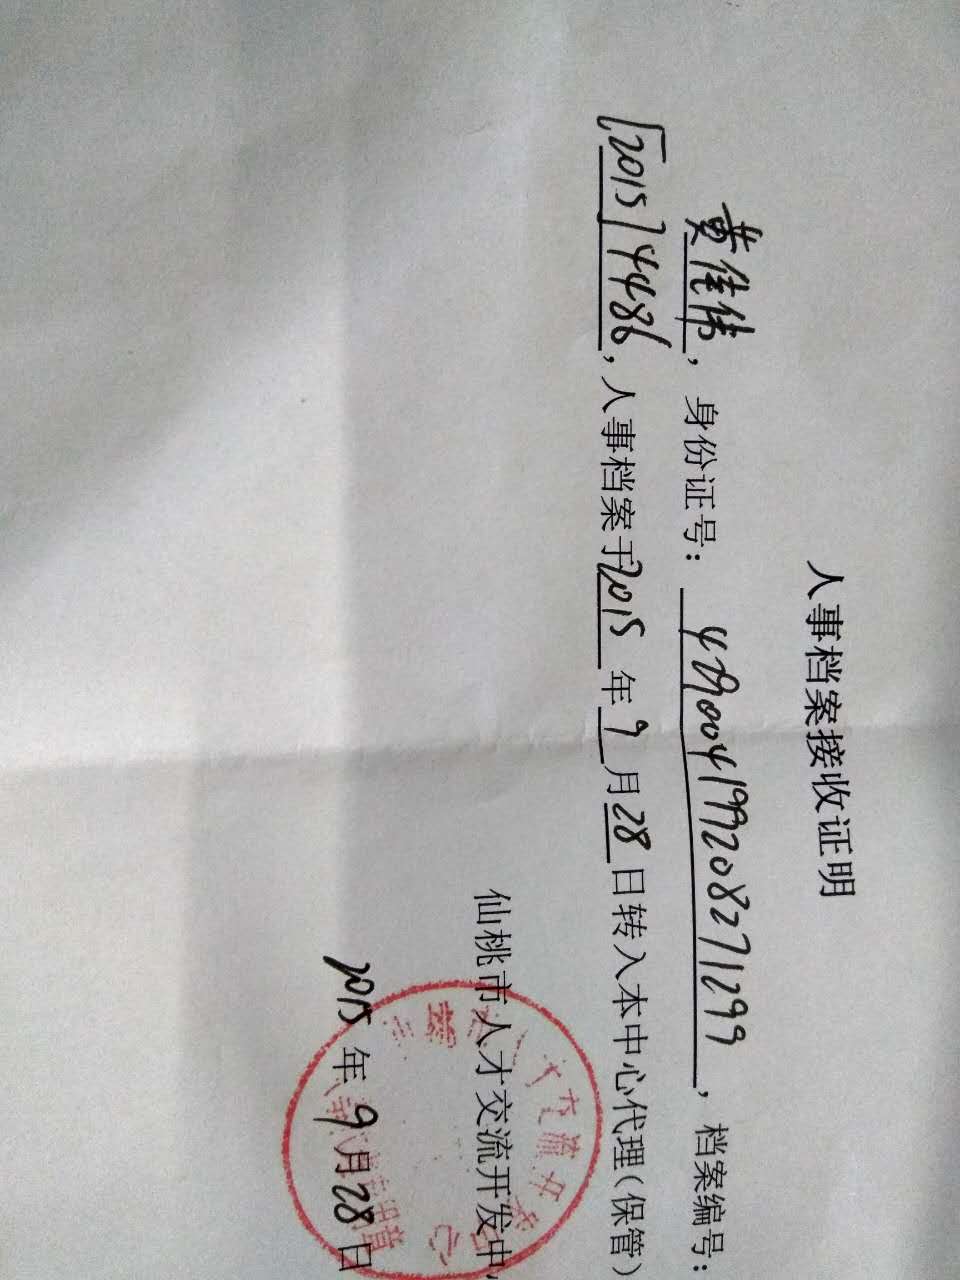 人事档案接收证明
黄佳伟，身份证号：429004199208271299，档案编号：
[2015]4486，人事档案于2015年9月28日转入本中心代理（保管）
仙桃市人才交流开发中
2015年9月28日